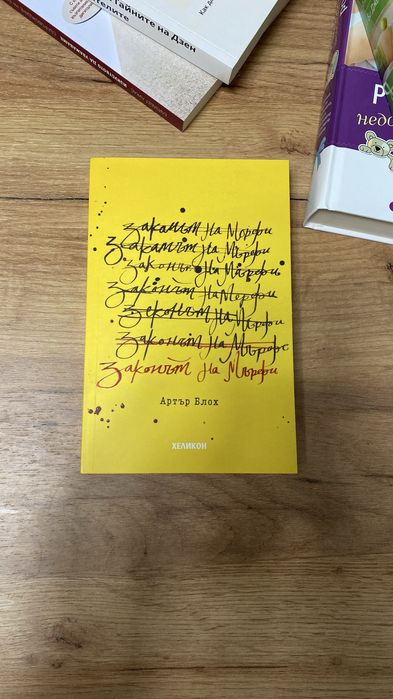 Тайните на Дзен
Законът на Морфи
Заканът на Мърфи
Законък на Мърфи
Законът на Мерфи
Зеконът на Мърфи
Законът на Мърфс
Законът на Мърфи
Артър Блох
ХЕЛИКОН